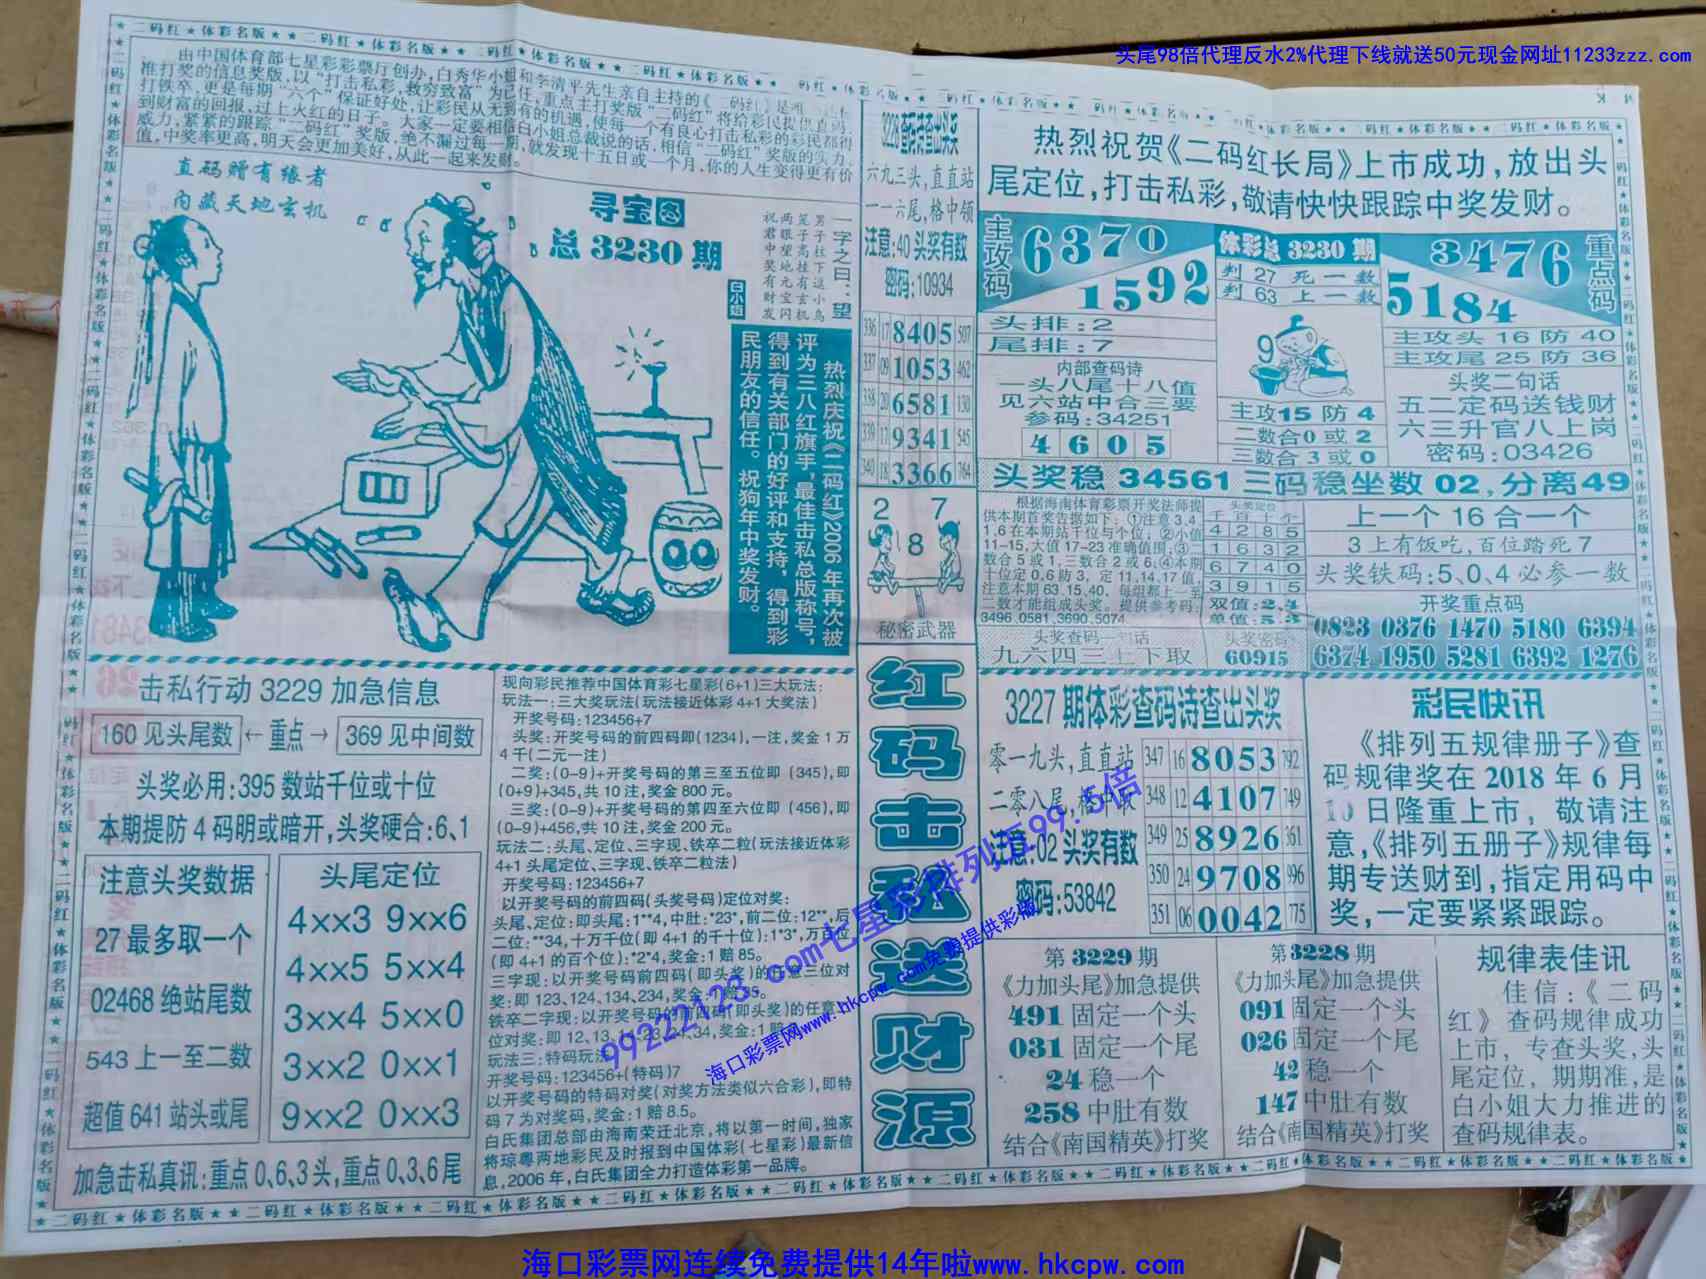 头尾98倍代理反水2%代理下线就送50元现金网址11233zzz.com
由中国体育部七星彩彩票厅创办,白秀华小姐和李清平先生亲自主持的《二码红》是唯
准打奖的信息奖版,以“打击私彩,救穷致富”为己任,重点主打奖版“二码红”将给彩民提供直码,
打铁卒,更是每期“六个”保证好处,让彩民从无到有的机遇,使每一个有良心打击私彩的彩民都得
到财富的回报,过上火红的日子。大家一定要相信白小姐总裁说的话,相信“二码红”奖版的实力,
威力,紧紧的跟踪“二码红”奖版,绝不漏过每一期,就发现十五日或一个月,你的人生变得更有价
值,中奖率更高,明天会更加美好,从此一起来发财。
直码赠有缘者
内藏天地玄机
寻宝图
总 3230 期
一字之曰:望
男子柱下逗小鸟
笼子高挂有玄机
两眼望地元宝闪
祝君中奖有财发
白小姐
热烈庆祝《二码红》2006年再次被
评为三八红旗手,最佳击私总版称号,
得到有关部门的好评和支持,得到彩
民朋友的信任。祝狗年中奖发财。
3228查码诗查出头奖
六九三头,直直站
一一六尾,格中领
注意:40 头奖有数
密码:10934
336 17 8405 507
337 09 1053 462
338 20 6581 130
339 17 9341 545
340 18 3366 764
2 7
8
秘密武器
红码击私送财源
热烈祝贺《二码红长局》上市成功,放出头
尾定位,打击私彩,敬请快快跟踪中奖发财。
主攻码
6370
1592
体彩总 3230 期
判 27 死一数
判 63 上一数
3476
5184
重点码
头排:2
尾排:7
内部查码诗
一头八尾十八值
见六站中合三要
参码:34251
4605
9
主攻15 防 4
二数合0 或 2
三数合3 或 0
主攻头 16 防 40
主攻尾 25 防 36
头奖二句话
五二定码送钱财
六三升官八上岗
密码:03426
头奖稳 34561 三码稳坐数 02,分离49
根据海南体育彩票开奖法师提
供本期首奖告据如下:①注意 3,4
1,6 在本期站千位与个位;②小值
11-15,大值 17-23 准确值围;③二
数合 5 或 1,三数合 2 或 6;④本期
十位定 0,6 防 3, 定 11,14,17 值,
注意本期 63,15,40, 每组都上一至
二数才能组成头奖。提供参考码:
3496,0581,3690,5074
头奖定位
千百十个
4285
1632
6740
3915
双值:2,4
单值:5,3
上一个 16 合一个
3 上有饭吃,百位踏死 7
头奖铁码:5、0、4 必参一数
头奖查码一句话
九六四三上下取
头奖密码
60915
开奖重点码
0823 0376 1470 5180 6394
6374 1950 5281 6392 1276
击私行动 3229 加急信息
160 见头尾数 ← 重点 → 369 见中间数
头奖必用:395 数站千位或十位
本期提防 4 码明或暗开,头奖硬合:6、1
注意头奖数据
27 最多取一个
02468 绝站尾数
543 上一至二数
超值 641 站头或尾
头尾定位
4××3 9××6
4××5 5××4
3××4 5××0
3××2 0××1
9××2 0××3
加急击私真讯:重点 0、6、3 头,重点 0、3、6 尾
现向彩民推荐中国体育彩七星彩(6+1)三大玩法:
玩法一:三大奖玩法(玩法接近体彩 4+1 大奖法)
开奖号码:123456+7
头奖:开奖号码的前四码即(1234),一注,奖金 1 万
4 千(二元一注)
二奖:(0-9)+开奖号码的第三至五位即 (345),即
(0+9)+345,共 10 注,奖金 800 元。
三奖:(0-9)+开奖号码的第四至六位即 (456),即
(0-9)+456,共 10 注,奖金 200 元。
玩法二:头尾、定位、三字现、铁卒二粒(玩法接近体彩
4+1 头尾定位、三字现、铁卒二粒法)
开奖号码:123456+7
以开奖号码的前四码(头奖号码)定位对奖:
头尾、定位:即头尾:1**4,中肚:*23*,前二位:12**,后
二位:**34,十万千位(即 4+1 的千十位):1*3*,万百位
(即 4+1 的百个位):*2*4,奖金:1 赔 85。
三字现:以开奖号码前四码(即头奖)的任意三位对
奖:即 123、124、134、234,奖金:1
铁卒二字现:以开奖号码的前四码(即头奖)的任意
位对奖:即 12、13、14、23、24、34,奖金:1 赔
玩法三:特码玩法
开奖号码:123456+(特码)7
以开奖号码的特码对奖(对奖方法类似六合彩),即特
码 7 为对奖码,奖金:1 赔 8.5。
白氏集团总部由海南荣迁北京,将以第一时间,独家
将琼粤两地彩民及时报到中国体彩(七星彩)最新信
息,2006 年,白氏集团全力打造体彩第一品牌。
3227 期体彩查码诗查出头奖
零一九头,直直站
二零八尾,格中取
注意:02 头奖有数
密码:53842
347 16 8053 792
348 12 4107 749
349 25 8926 361
350 24 9708 996
351 06 0042 775
彩民快讯
《排列五规律册子》查
码规律奖在 2018 年 6 月
10 日隆重上市, 敬请注
意,《排列五册子》规律每
期专送财到,指定用码中
奖,一定要紧紧跟踪。
第 3229 期
《力加头尾》加急提供
491 固定一个头
031 固定一个尾
24 稳一个
258 中肚有数
结合《南国精英》打奖
第 3228 期
《力加头尾》加急提供
091 固定一个头
026 固定一个尾
42 稳一个
147 中肚有数
结合《南国精英》打奖
规律表佳讯
佳信:《二码
红》查码规律成功
上市, 专查头奖,头
尾定位, 期期准,是
白小姐大力推进的
查码规律表。
99222123.com七星彩排列五99.5倍
海口彩票网www.hkcpw.com免费提供彩版
二码红★体彩名版★★二码红★体彩名版★★二码红★体彩名版
海口彩票网连续免费提供14年啦www.hkcpw.com